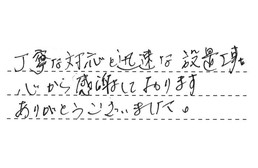 丁寧な対応と迅速な設置工事
心から感謝しております
ありがとうございました。